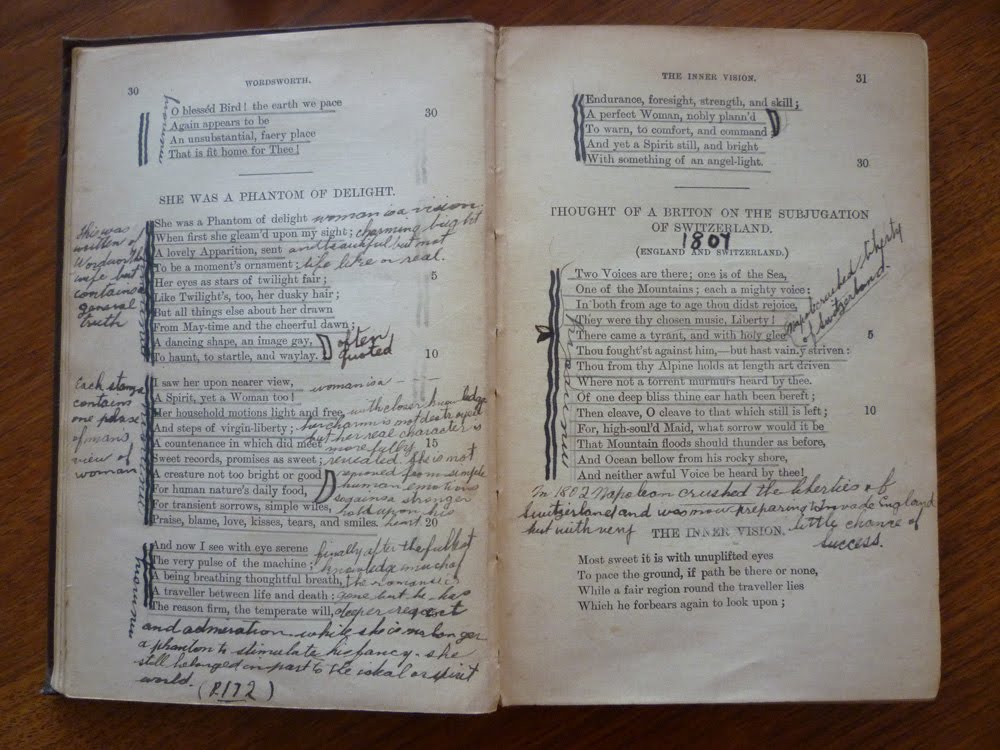 30
WORDSWORTH.
O blesséd Bird! the earth we pace
Again appears to be
An unsubstantial, faery place
That is fit home for Thee!
30
memory
SHE WAS A PHANTOM OF DELIGHT.
She was a Phantom of delight
When first she gleam'd upon my sight;
A lovely Apparition, sent
To be a moment's ornament;
Her eyes as stars of twilight fair;
5
Like Twilight's, too, her dusky hair;
But all things else about her drawn
From May-time and the cheerful dawn;
A dancing shape, an image gay,
To haunt, to startle, and waylay.
10
woman is a vision,
charming bright
and beautiful but not
life like or real.
This was
written of
Wordsworth's
wife but
contains
general
truth
often
quoted
I saw her upon nearer view,
A Spirit, yet a Woman too!
Her household motions light and free,
And steps of virgin-liberty;
A countenance in which did meet
15
Sweet records, promises as sweet;
A creature not too bright or good
For human nature's daily food,
For transient sorrows, simple wiles,
Praise, blame, love, kisses, tears, and smiles.
20
woman is a
with closer knowledge
her charm is not destroyed
but her real character is
more fully
revealed. She is not
removed from simple
human emotions
so gains a stronger
hold upon his
heart
Each stanza
contains
one phase
of mans
view of
woman
And now I see with eye serene
The very pulse of the machine;
A being breathing thoughtful breath,
A traveller between life and death:
The reason firm, the temperate will,
finally after the fullest
knowledge much of
the romance is
gone but he has
deeper respect
and admiration. while she is no longer
a phantom to stimulate his fancy. she
still belonged in part to the ideal or spirit
world. (P.172)
memory
THE INNER VISION.
31
Endurance, foresight, strength, and skill;
A perfect Woman, nobly plann'd
To warn, to comfort, and command
And yet a Spirit still, and bright
With something of an angel-light.
30
THOUGHT OF A BRITON ON THE SUBJUGATION
OF SWITZERLAND.
1807
(ENGLAND AND SWITZERLAND.)
Two Voices are there; one is of the Sea,
One of the Mountains; each a mighty voice:
In both from age to age thou didst rejoice,
They were thy chosen music, Liberty!
There came a tyrant, and with holy glee
5
Thou fought'st against him,—but hast vainly striven:
Thou from thy Alpine holds at length art driven
Where not a torrent murmurs heard by thee.
Of one deep bliss thine ear hath been bereft;
Then cleave, O cleave to that which still is left;
10
For, high-soul'd Maid, what sorrow would it be
That Mountain floods should thunder as before,
And Ocean bellow from his rocky shore,
And neither awful Voice be heard by thee!
Nap crushed liberty
of Switzerland.
In 1802 Napoleon crushed the liberties of
Switzerland and was now preparing to invade England
but with very
little chance of
success.
THE INNER VISION.
Most sweet it is with unuplifted eyes
To pace the ground, if path be there or none,
While a fair region round the traveller lies
Which he forbears again to look upon;